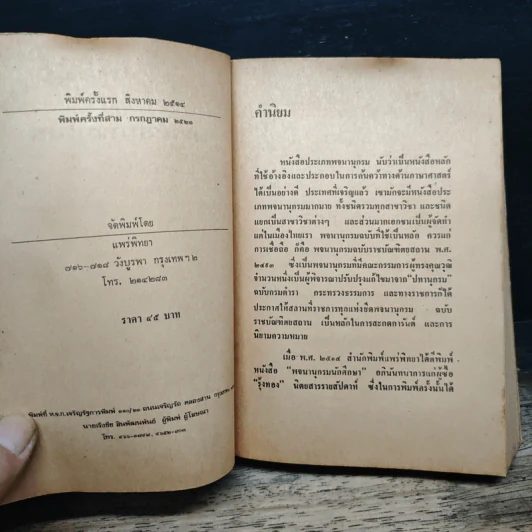 พิมพ์ครั้งแรก สิงหาคม ๒๕๑๔
พิมพ์ครั้งที่สาม กรกฎาคม ๒๕๒๑
จัดพิมพ์โดย
แพร่พิทยา
๗๑๖-๗๑๘ วังบูรพา กรุงเทพฯ ๒
โทร. ๒๑๔๒๘๓
ราคา ๔๕ บาท
พิมพ์ที่ ห.ส.ก.เจริญรัฐการพิมพ์ ถนนเจริญรัถ คลองสาน
นายเริงชัย อินพัฒนพันธ์ ผู้พิมพ์ ผู้โฆษณา
โทร.
คำนิยม
หนังสือประเภทพจนานุกรม นับว่าเป็นหนังสือหลัก
ที่ใช้อ้างอิงและประกอบในการค้นคว้าทางด้านภาษาศาสตร์
ได้เป็นอย่างดี ประเทศที่เจริญแล้ว เขามักจะมีหนังสือประ
เภทพจนานุกรมมากมาย ทั้งชนิดรวมทุกสาขาวิชา และชนิด
แยกเป็นสาขาวิชาต่างๆ และส่วนมากเอกชนเป็นผู้จัดทำ
แต่ในเมืองไทยเรา พจนานุกรมฉบับที่ใช้เป็นหลัก ควรแก่
การเชื่อถือ ก็คือ พจนานุกรมฉบับราชบัณฑิตยสถาน พ.ศ.
๒๔๙๓ ซึ่งเป็นพจนานุกรมที่มีคณะกรรมการผู้ทรงคุณวุฒิ
จำนวนหนึ่งเป็นผู้พิจารณาปรับปรุงแก้ไขมาจาก “ปทานุกรม”
ฉบับกรมตำรา กระทรวงธรรมการ และทางราชการก็ได้
ประกาศให้สถานที่ราชการทุกแห่งยึดพจนานุกรม ฉบับ
ราชบัณฑิตยสถาน เป็นหลักในการสะกดการันต์ และการ
นิยามความหมาย
เมื่อ พ.ศ. ๒๕๑๔ สำนักพิมพ์แพร่พิทยาได้ตีพิมพ์
หนังสือ “พจนานุกรมนักศึกษา” อภินันทนาการแก่ผู้ซื้อ
“รุ้งทอง” นิตยสารรายสัปดาห์ ซึ่งในการพิมพ์ครั้งนั้นได้